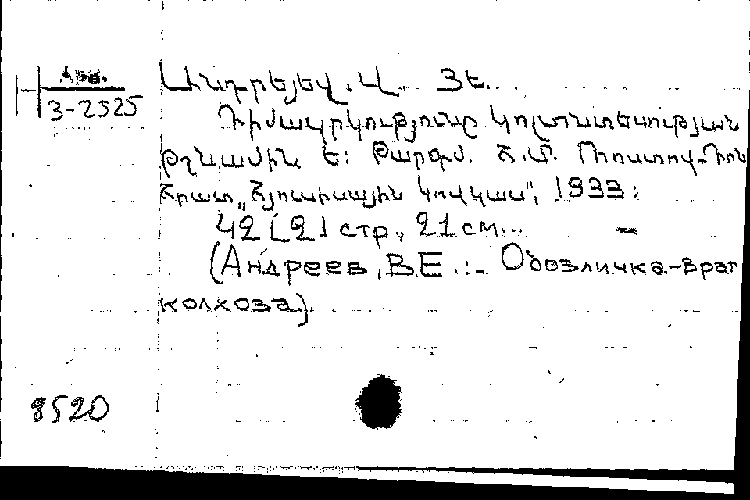 Арм.
3-2525
Անդրեյեվ. Վ. Յե.
Դիմազրկությունը կոլտնտեսության
թշնամին է: Թարգմ. Ռոստով-Դոն
հրատ. „Հյուսիսային կովկաս", 1933:
42 [2] стр., 21 см...
(Андреев, В Е .:- Обезличка-враг
колхоза)
8520